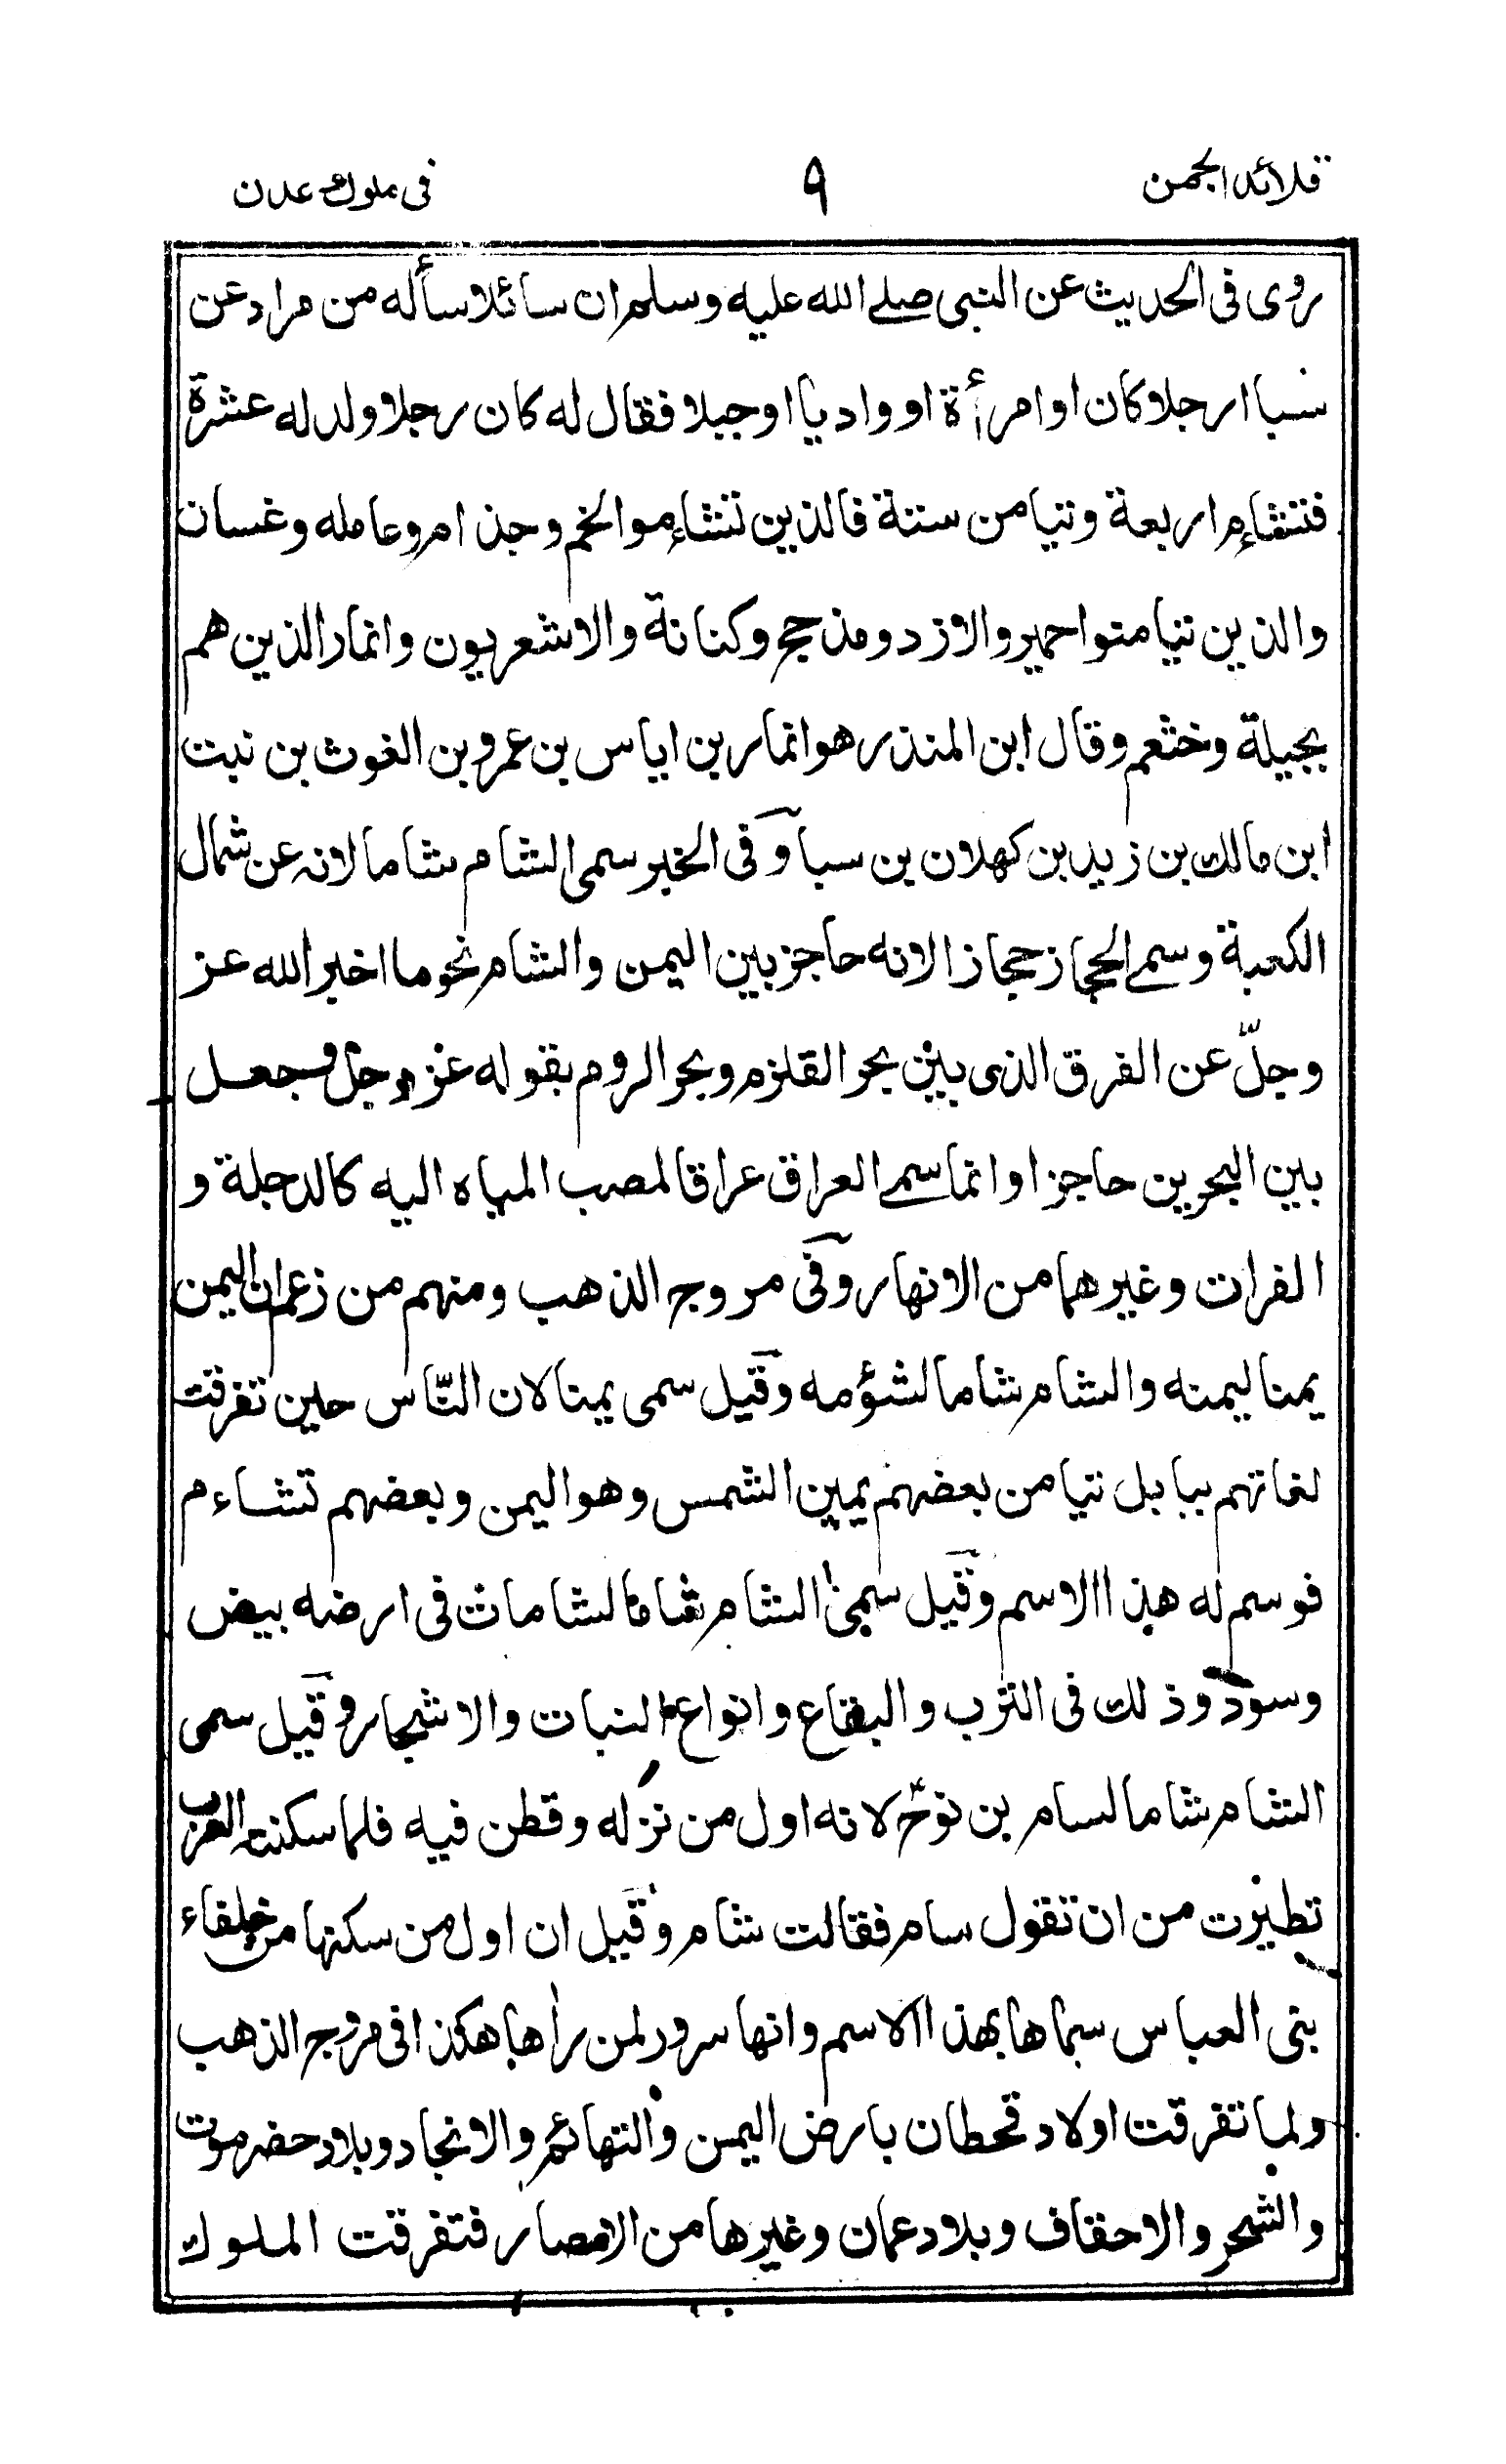 قلائد الجمن
٩
فى ملوك عدن
روى فى الحديث عن النبى صلے الله عليه وسلم ان سائلا سأله من مراد عن
سبا ارجلا كان او امرأة او واديا او جبلا فقال له كان رجلا ولد له عشرة
فتشاءم اربعة وتيامن ستة فالذين تشاءموا لخم وجذام وعامله وغسان
والذين تيامنوا حمير والازد ومذحج وكنانة والاشعريون وانمار الذين هم
بجيلة وخثعم وقال ابن المنذر هو انمار بن اياس بن عمرو بن الغوث بن نبت
ابن مالك بن زيد بن كهلان بن سبا وفى الخبر سمى الشام شاما لانه عن شمال
الكعبة وسمے الحجاز حجازا لانه حاجز بين اليمن والشام نحو ما اخبر الله عز
وجلّ عن الفرق الذى بين بحر القلزم وبحر الروم بقوله عز وجل وجعل
بين البحرين حاجزا وانما سمے العراق عراقا لمصب المياه اليه كالدجلة و
الفرات وغيرهما من الانهار وفى مروج الذهب ومنهم من زعم ان اليمن
يمنا ليمنه والشام شاما لشؤمه وقيل سمى يمنا لان النّاس حين تفرقت
لغاتهم ببابل تيامن بعضهم يمين الشمس وهو اليمن وبعضهم تشاءم
فوسم له هذا الاسم وقيل سمى الشام شاما لشامات فى ارضه بيض
وسود وذلك فى الترب والبقاع وانواع النبات والاشجار وقيل سمى
الشام شاما لسام بن نوح لانه اول من نزله وقطن فيه فلما سكنته العرب
تطيرت من ان تقول سام فقالت شام وقيل ان اول من سكنها من خلفاء
بنى العباس سماها بهذا الاسم وانها سرور لمن رأها هكذا فى مروج الذهب
ولما تفرقت اولاد قحطان بارض اليمن والتهائم والانجاد وبلاد حضرموت
والشحر والاحقاف وبلاد عمان وغيرها من الامصار فتفرقت الملوك